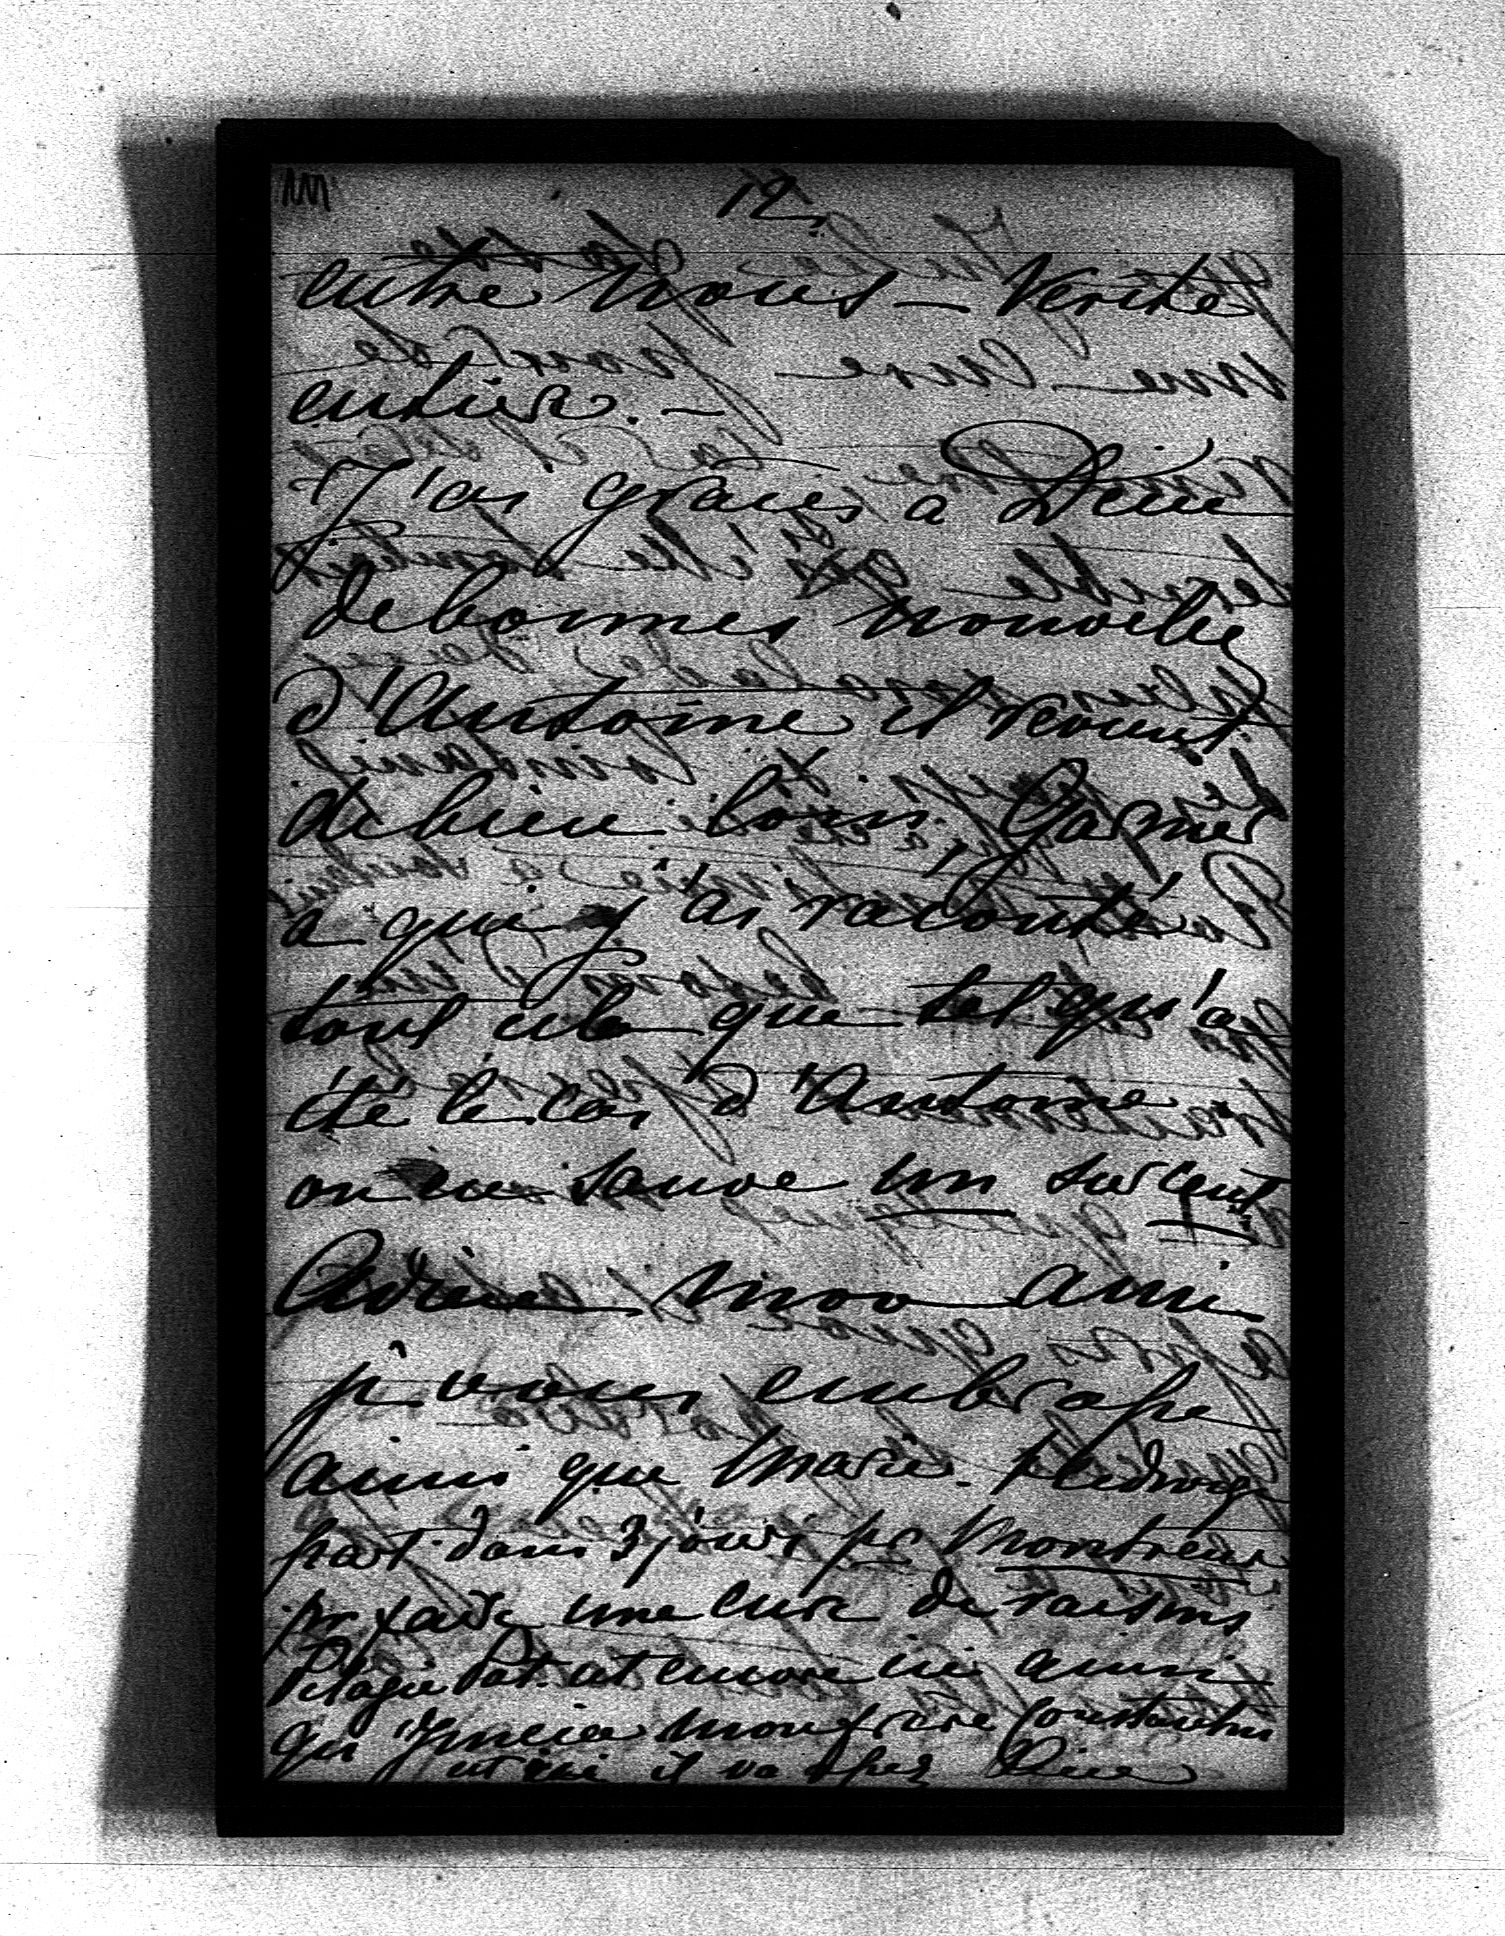 12
entre nous – Verité
entière. –
J'ai graces a Dieu
de bonnes nouvelles
d'Antoine il revient
de bien loin. Garnier
a qui j'ai raconté
tout cela que tel qu'a
été le cas d'Antoine
on en sauve un sur cent
Adieu mon ami
je vous embrasse
ainsi que Marie. Hedwige
part dans 3 jours pr Montreux
pr faire une cure de raisins
Pelagie est encore ici ainsi
qu' mon frère Constantin
est ici il va assez bien